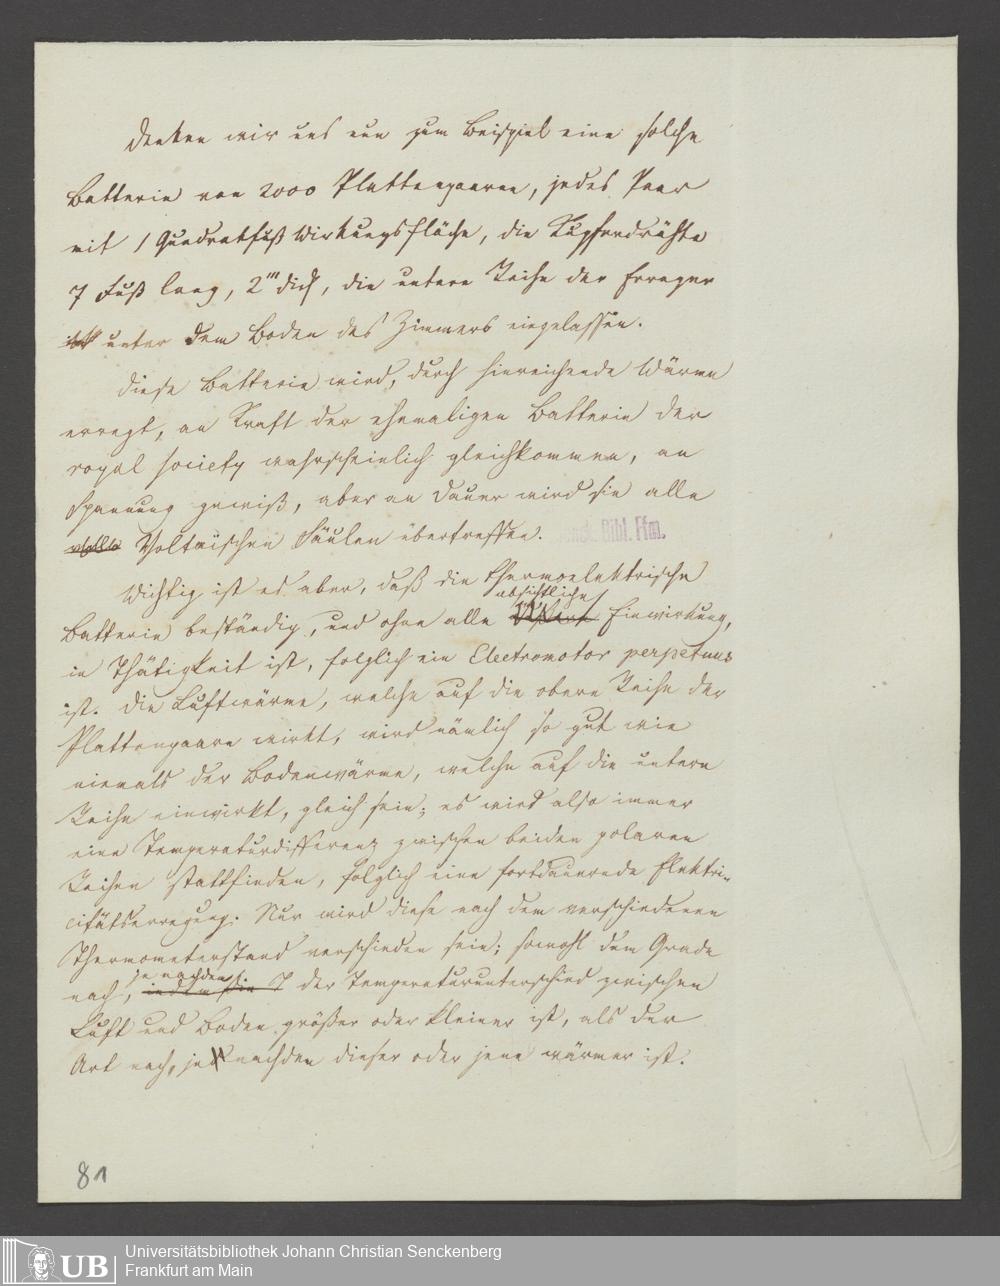 Denken wir uns nun zum Beispiel eine solche
Batterie von 2000 Plattenpaaren, jedes Paar
mit 1 Quadratfuß Wirkungsfläche, die Kupferdrähte
7 Fuß lang, 2''' dick, die untere Reihe der Erreger
unter dem Boden des Zimmers eingelassen.
Diese Batterie wird, durch hinreichende Wärme
erregt, an Kraft der ehemaligen Batterie der
royal society wahrscheinlich gleichkommen, an
Spannung gewiß, aber an Dauer wird sie alle
Voltaischen Säulen übertreffen.
Senck. Bibl. Ffm.
Wichtig ist es aber, daß die thermoelektrische
absichtliche
Batterie beständig, und ohne alle Einwirkung,
in Thätigkeit ist, folglich ein Electromotor perpetuus
ist. Die Luftwärme, welche auf die obere Reihe der
Plattenpaare wirkt, wird nämlich so gut wie
niemals der Bodenwärme, welche auf die untere
Reihe einwirkt, gleich sein; es wird also immer
eine Temperaturdifferenz zwischen beiden polaren
Reihen stattfinden, folglich eine fortdauernde Elektri-
citätserregung. Nur wird diese nach dem verschiedenen
Thermometerstand verschieden sein; sowohl dem Grade
je nachdem
nach, der Temperaturunterschied zwischen
Luft und Boden größer oder kleiner ist, als der
Art nach, je nachdem dieser oder jene wärmer ist.
81
UB
Universitätsbibliothek Johann Christian Senckenberg
Frankfurt am Main